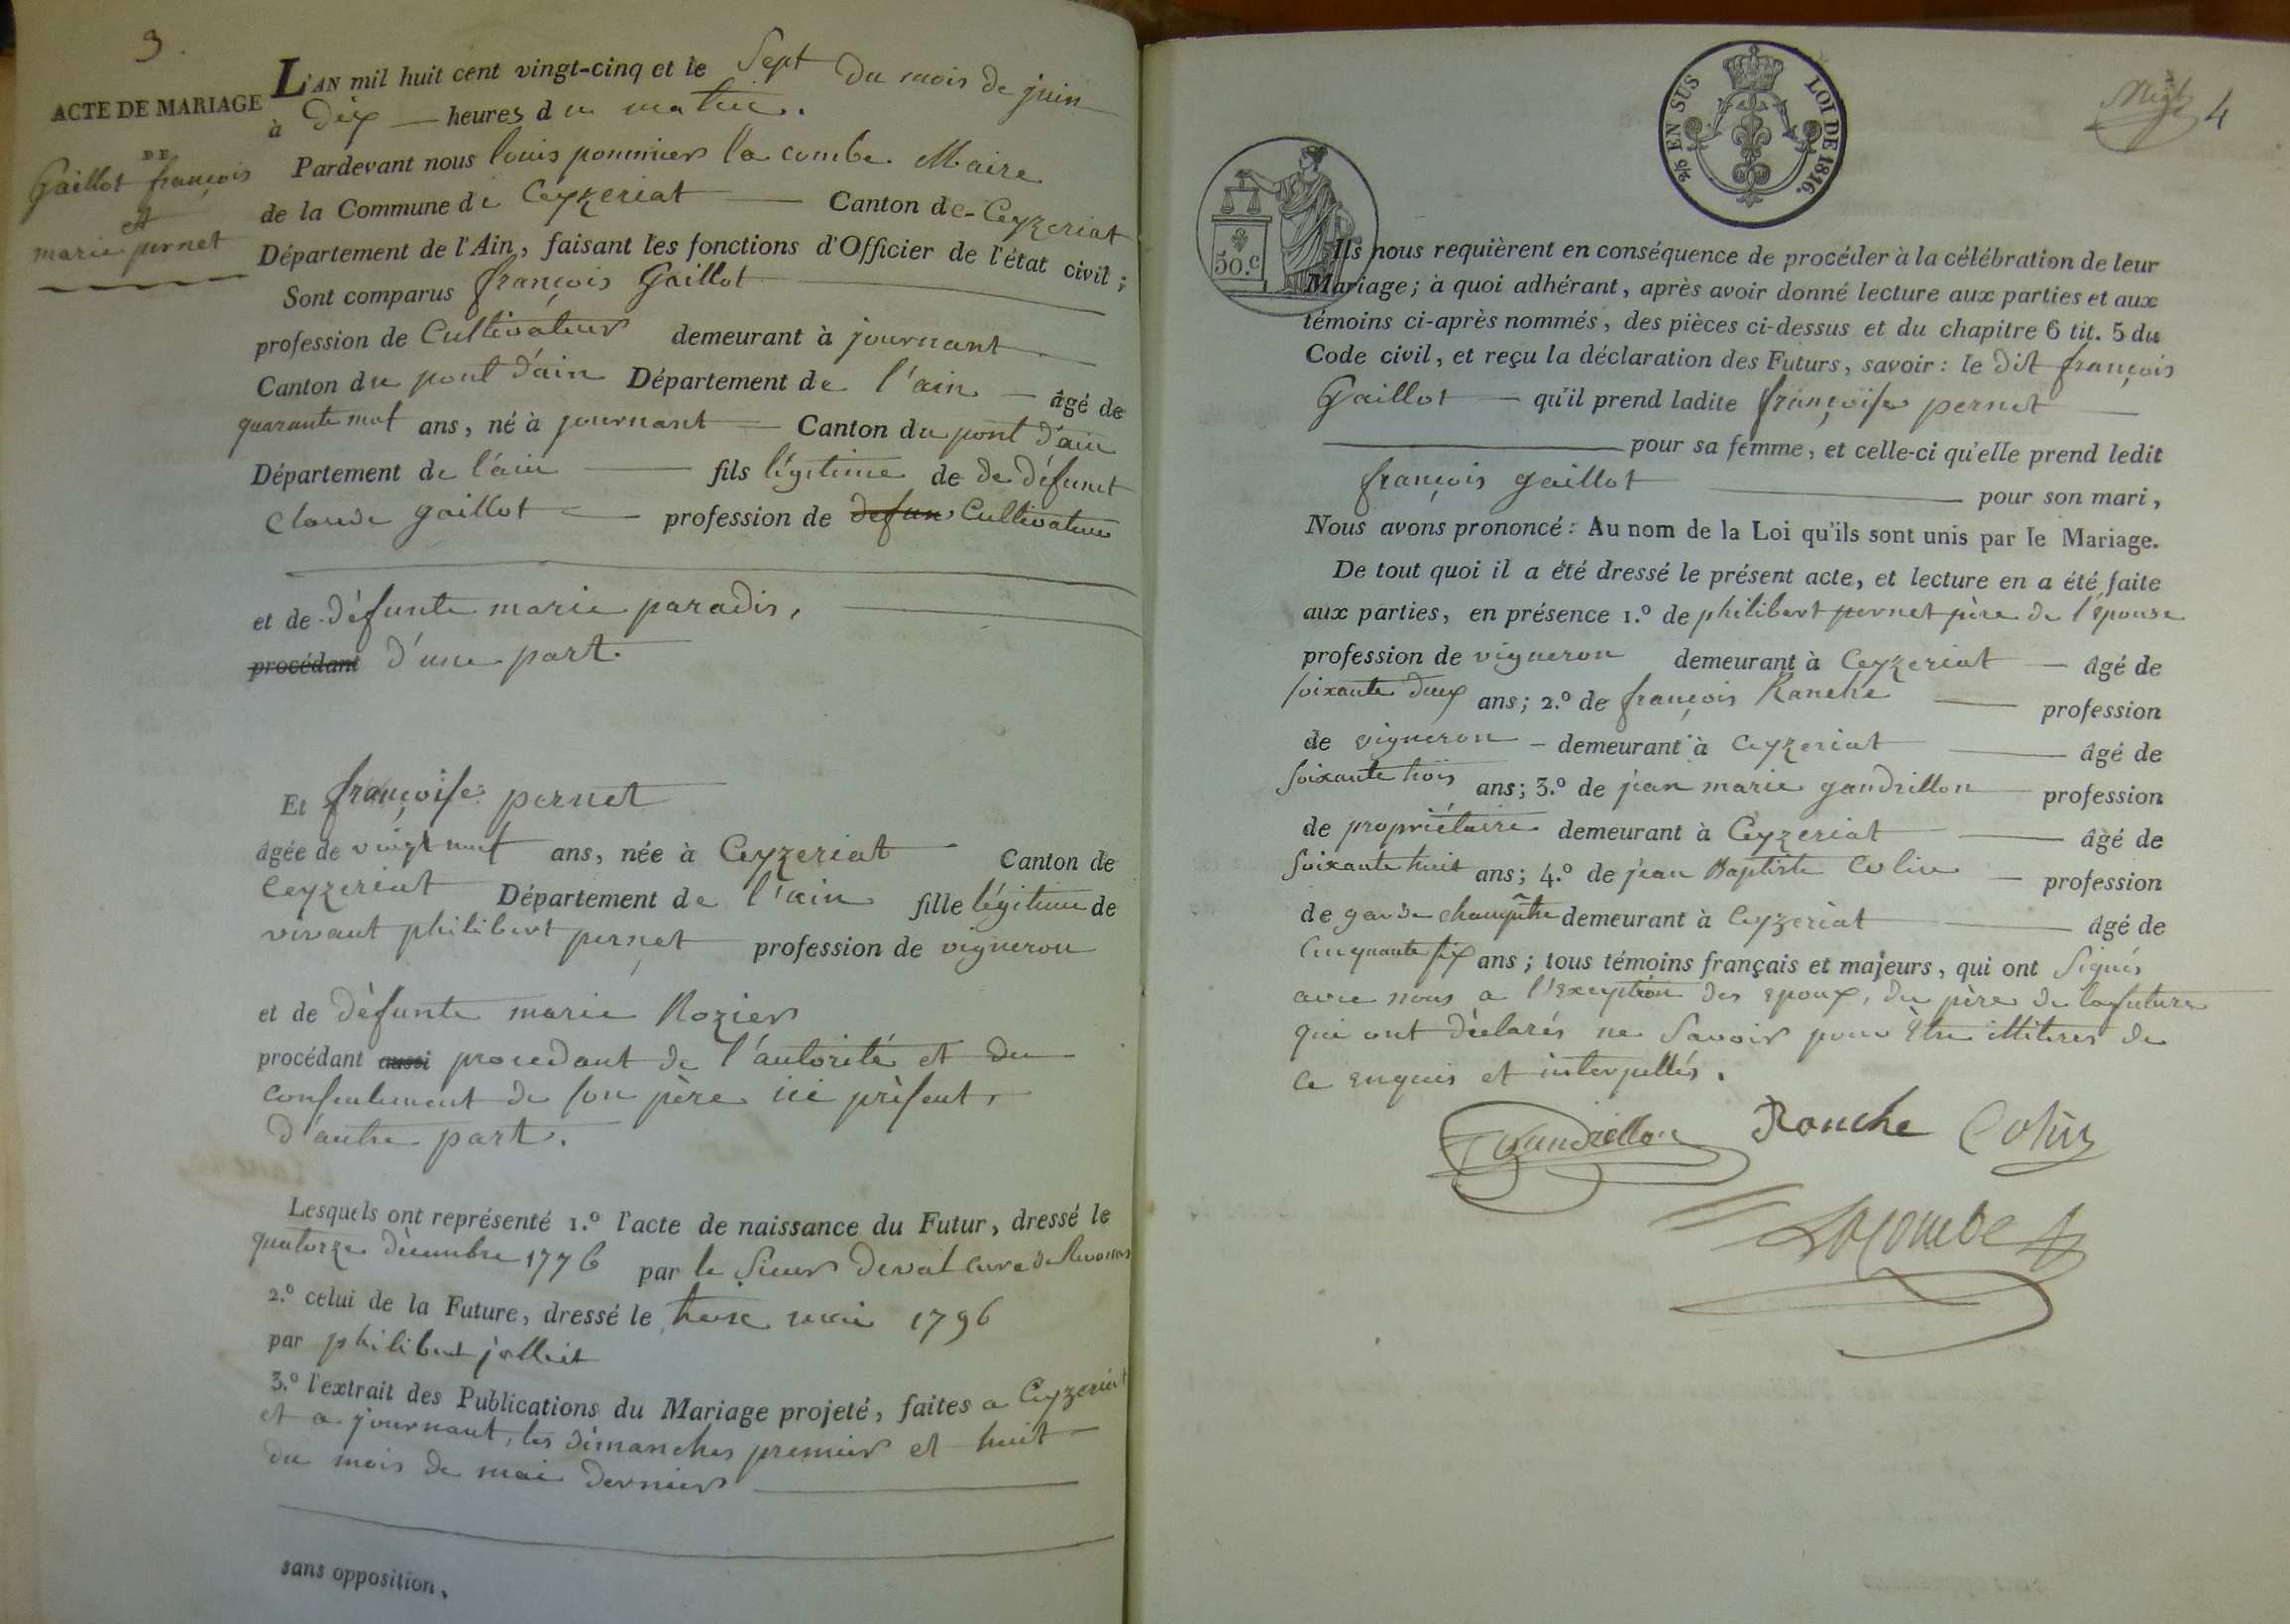 3.
ACTE DE MARIAGE
DE
Gaillot françois
et
marie pernet
L'AN mil huit cent vingt-cinq et le Sept du mois de juin
à Dix heures du matin.
Pardevant nous louis pommier la combe Maire
de la Commune de Ceyzeriat Canton de Ceyzeriat
Département de l'Ain, faisant les fonctions d'Officier de l'état civil;
Sont comparus françois Gaillot
profession de Cultivateur demeurant à journant
Canton du pont d'ain Département de l'ain âgé de
quarante neuf ans, né à journant Canton du pont d'ain
Département de l'ain fils légitime de de défunct
Claude gaillot profession de defun Cultivateur
et de défunte marie paradis,
procédant d'une part.
Et françoise pernet
âgée de vingt neuf ans, née à Ceyzeriat Canton de
Ceyzeriat Département de l'ain fille légitime de
vivant philibert pernet profession de vigneron
et de défunte marie Rozier
procédant aussi procedant de l'autorité et du
consentement de son père ici présent,
d'autre part.
Lesquels ont représenté 1.º l'acte de naissance du Futur, dressé le
quatorze décembre 1776 par le Sieur curé de
2.º celui de la Future, dressé le mai 1796
par philibert jolliet
3.º l'extrait des Publications du Mariage projeté, faites a Ceyzeriat
et a journant, les dimanches premier et huit
du mois de mai dernier
sans opposition.
2/5 EN SUS LOI DE 1816.
4
50.c
Ils nous requièrent en conséquence de procéder à la célébration de leur
Mariage; à quoi adhérant, après avoir donné lecture aux parties et aux
témoins ci-après nommés, des pièces ci-dessus et du chapitre 6 tit. 5 du
Code civil, et reçu la déclaration des Futurs, savoir: le dit françois
Gaillot qu'il prend ladite françoise pernet
pour sa femme, et celle-ci qu'elle prend ledit
françois gaillot pour son mari,
Nous avons prononcé: Au nom de la Loi qu'ils sont unis par le Mariage.
De tout quoi il a été dressé le présent acte, et lecture en a été faite
aux parties, en présence 1.º de philibert pernet père de l'épouse
profession de vigneron demeurant à Ceyzeriat âgé de
soixante deux ans; 2.º de françois Ranche profession
de vigneron demeurant à Ceyzeriat âgé de
soixante trois ans; 3.º de jean marie gandrillon profession
de propriétaire demeurant à Ceyzeriat âgé de
soixante huit ans; 4.º de jean Baptiste Colin profession
de garde champêtre demeurant à Ceyzeriat âgé de
Cinquante six ans; tous témoins français et majeurs, qui ont Signés
avec nous a l'exception des epoux, du père de la future
qui ont déclarés ne Savoir pour être illiteres de
ce enquis et interpellés.
Gandrillon Ranche Colin
Lacombe